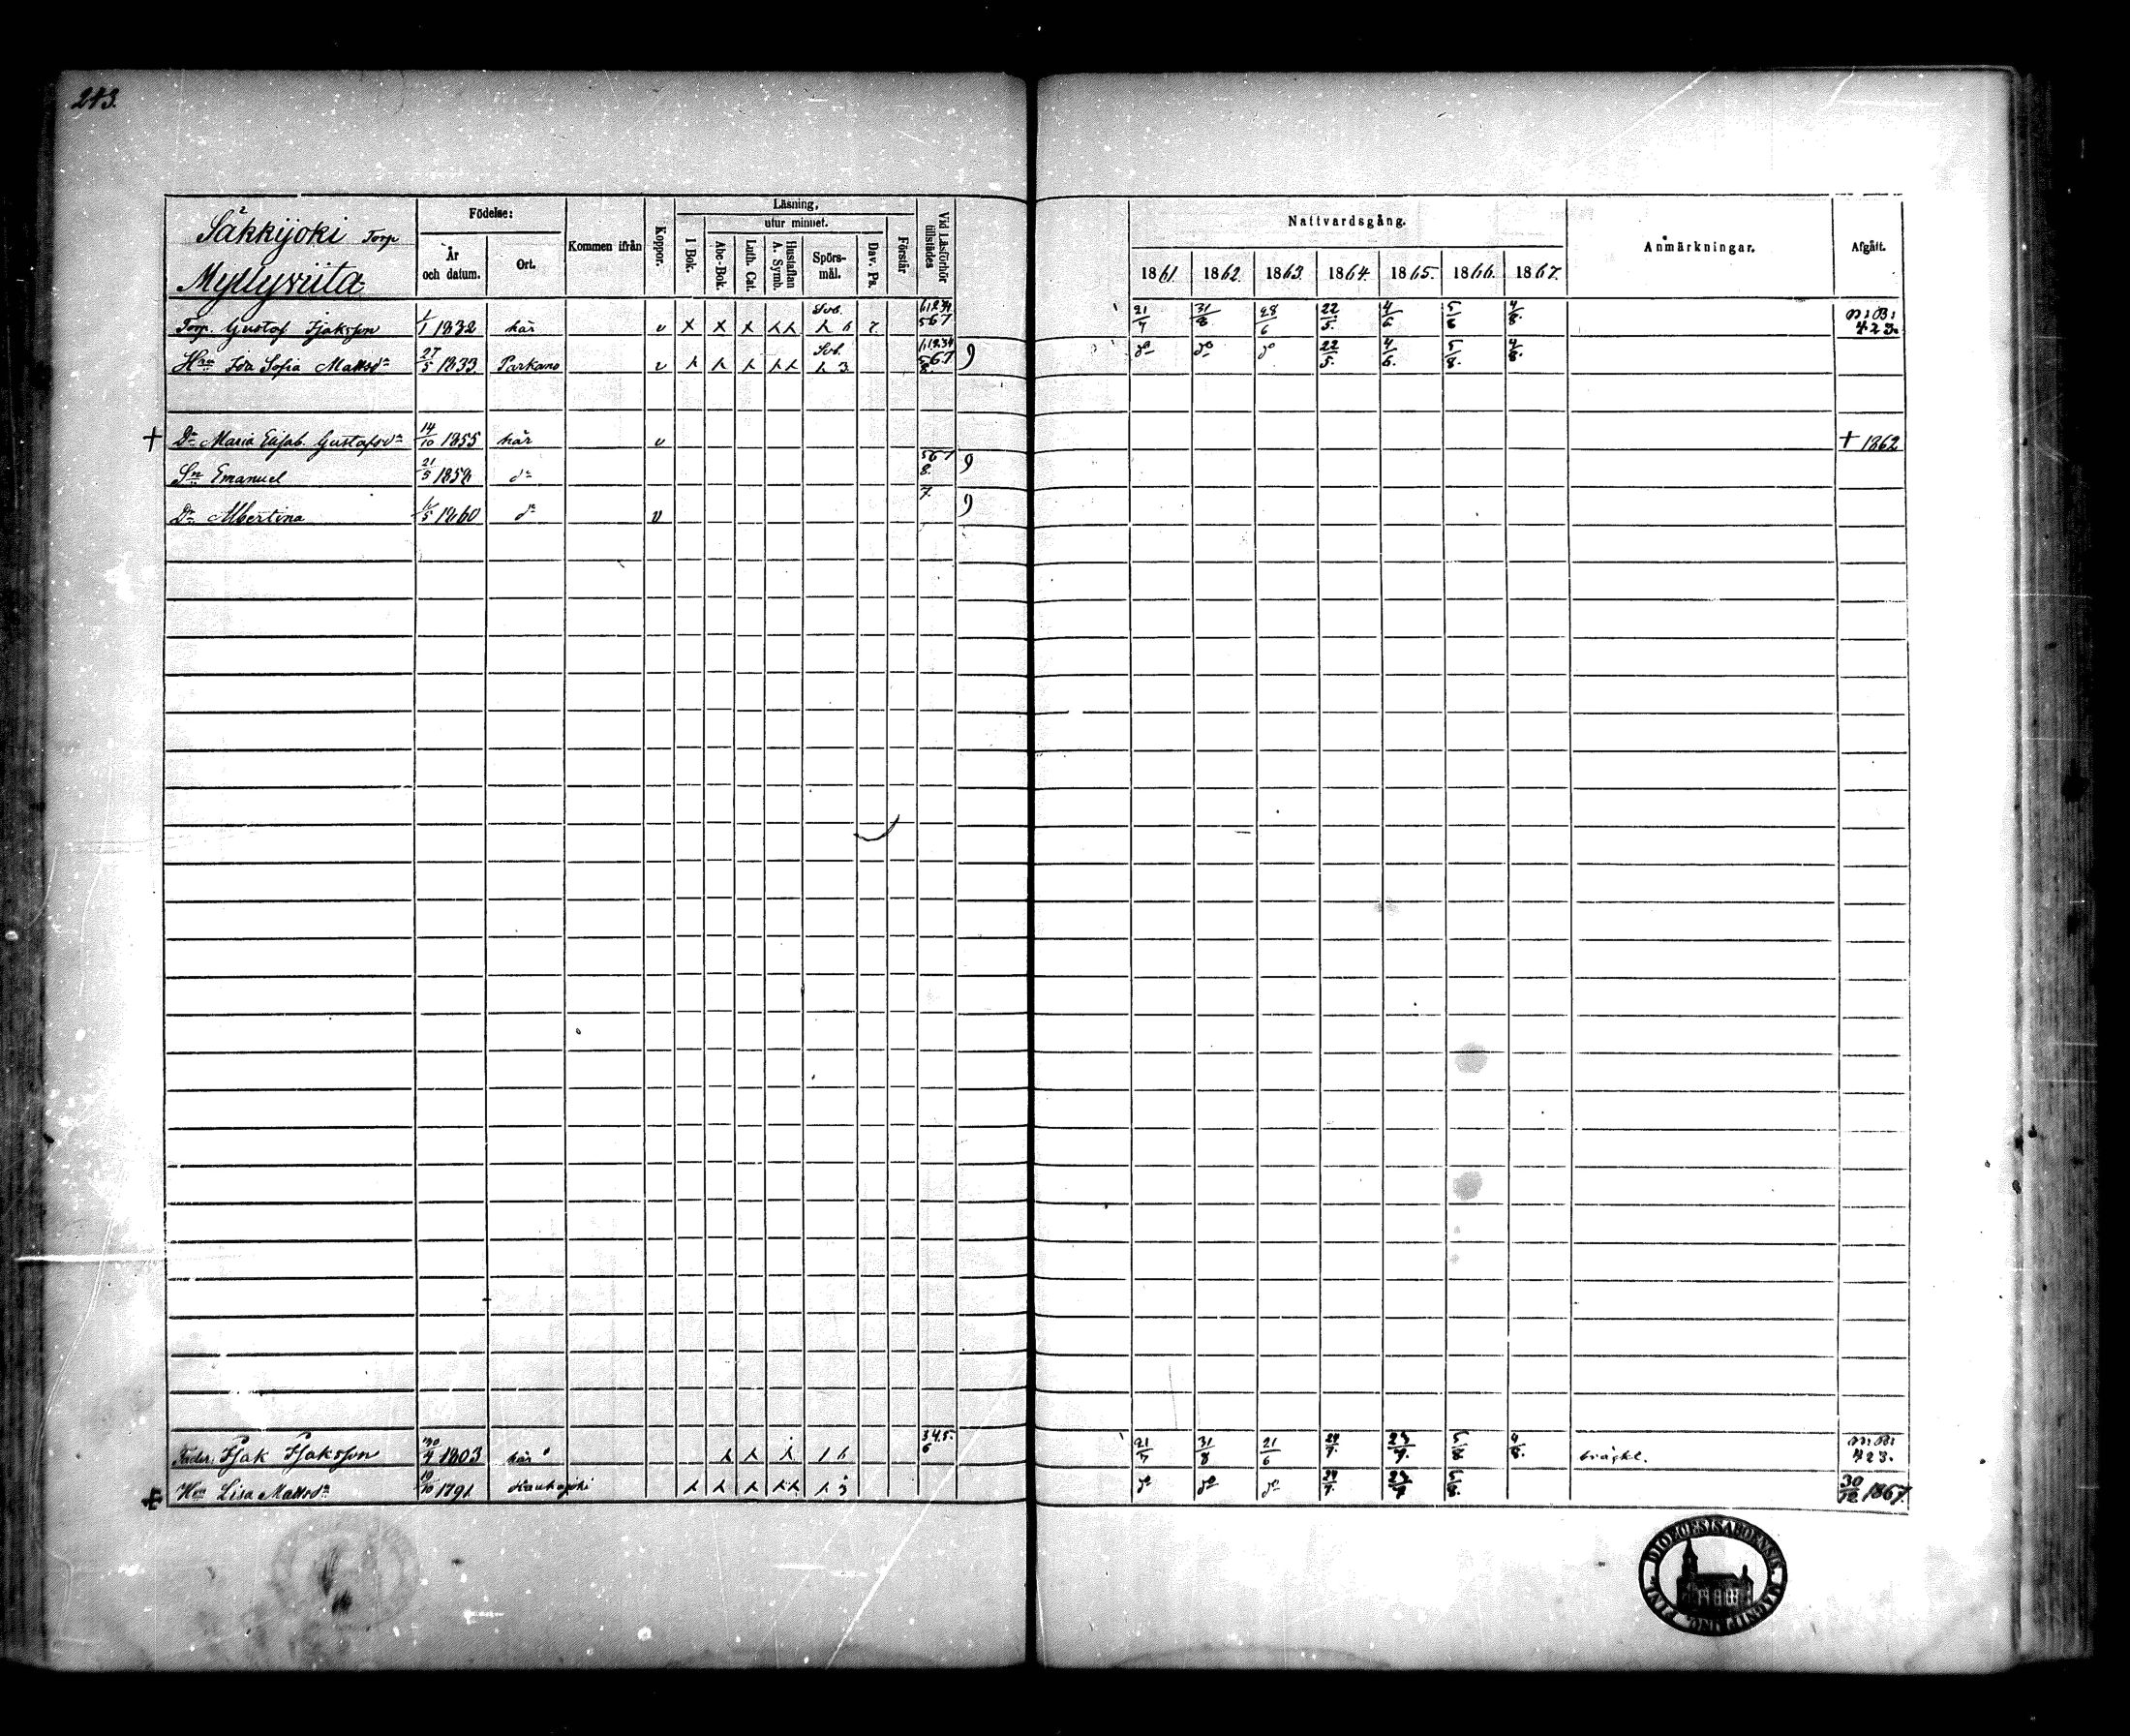 243.
Säkkijoki Torp
Myllyviita
Födelse:
År och datum.
Ort.
Kommen ifrån
Koppor.
Läsning,
utur minnet.
I Bok.
Abc-Bok
Luth. Cat.
Hustaflan A. Symb.
Spörs-mål.
Dav. Ps.
Förstår
Vid Läsförhör tillstädes
Nattvardsgång.
1861. 1862. 1863. 1864. 1865. 1866. 1867.
Anmärkningar.
Afgått.
Torp. Gustaf Isaksson 1/1 1832 här v 567 21/7 31/8 28/6 22/5. 4/6 5/8 4/8. 423.
Hu Ida Sofia Mattsdr 27/5 1833 Parkano v 3 567 8. 9 do do do 22/5. 4/6. 5/8. 4/8.
+ Dr Maria Elisab. Gustafsdr 14/10 1855 här v + 1862
Sn Emanuel 21/5 1858 do 567 8. 9
Dr Albertina 1860 do v 7. 9
Fader. Isak Isaksson 1803 här 345 6 21/7 31/8 21/6 5/8. 4/8. bräckl. 423.
Hu Lisa Mattsdr 19/10 1791 Kauhajoki do do do 5/8. 30/12 1867.
DIOECESIS ABOENSIS